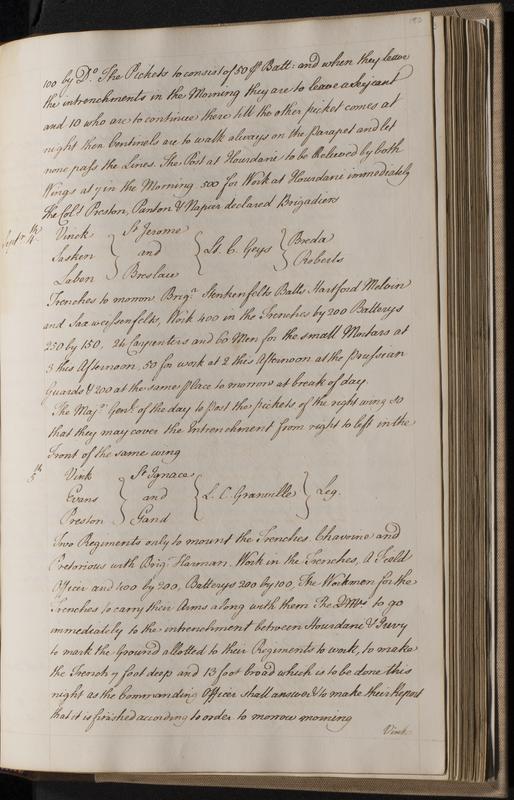 100 by Do. The Pickets to consist of 50 P Batt: and when they leave
the intrenchments in the Morning they are to leave a Serjeant
and 10 who are to continue there till the other picket comes at
night then Centinels are to walk always on the Parapet and let
none pass the Lines. The Post at Hourdane to be Relieved by both
Wings at 7 in the Morning 500 for Work at Hourdane immediately
The Cols. Preston, Panton & Napier declared Brigadiers
Septr. 4th. Vinck } St Jerome
Sasken } and { Lt. C. Geys } Breda
Labon } Breslau Roberts
Trenches to morrow Brigr. Stenkenfelts Batts Hartford Meloin
and Saxweissenfelts, Work 400 in the Trenches by 200 Batterys
250 by 150, 24 Carpenters and 60 Men for the small Mortars at
3 this Afternoon, 50 for work at 2 this Afternoon at the prussian
Guards & 200 at the same place to morrow at break of day.
The Majr. Genl. of the day to post the pickets of the right wing so
that they may cover the Intrenchment from right to left in the
Front of the same wing
5th Vink } St Ignace
Evans } and { L. C. Granville } Leg.
Preston } Gand
Two Regiments only to mount the Trenches, Chavonne and
Pretorious with Brigr. Harman. Work in the Trenches, A Field
Officer and 400 by 200, Batterys 200 by 100, The Workmen for the
Trenches to carry their Arms along with them The Q Mrs. to go
immediately to the intrenchment between Hourdane & Peruy
to mark the Ground allotted to their Regiments to work, to make
the Trench 7 foot deep and 13 foot broad which is to be done this
night as the Commanding Officer shall answer & to make their Report
that it is finished according to order to morrow morning
Vink